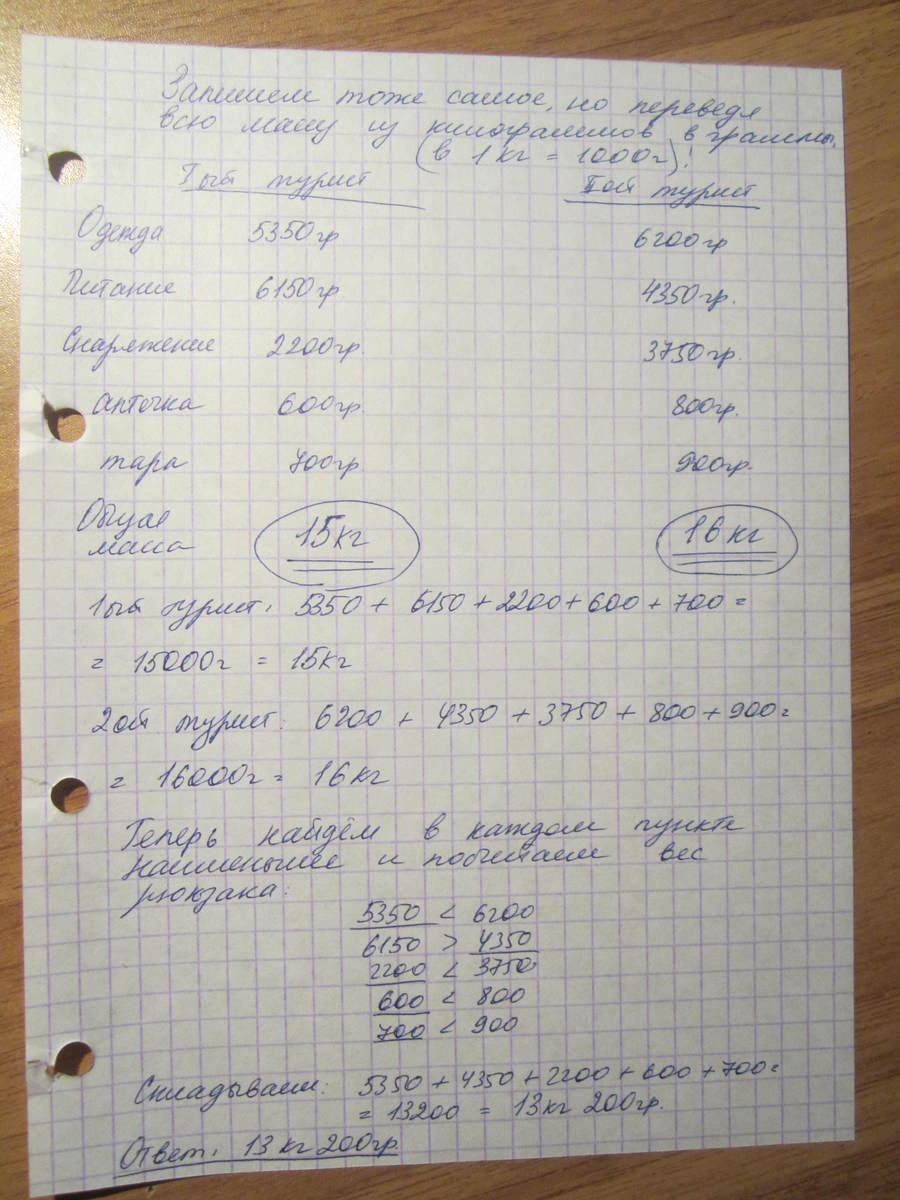 Запишем тоже самое, но переведя
всю массу из килограммов в граммы
(в 1 кг = 1000г)!
1ый турист 2ой турист
Одежда 5350гр 6200гр
Питание 6150гр 4350гр.
Снаряжение 2200гр. 3750гр.
аптечка 600гр. 800гр.
тара 700гр 900гр.
Общая
масса 15кг 16кг
1ый турист: 5350 + 6150 + 2200 + 600 + 700 =
= 15000г = 15кг
2ой турист: 6200 + 4350 + 3750 + 800 + 900 =
= 16000г = 16кг
Теперь найдём в каждом пункте
наименьшее и посчитаем вес
рюкзака:
5350 < 6200
6150 > 4350
2200 < 3750
600 < 800
700 < 900
Складываем: 5350 + 4350 + 2200 + 600 + 700 =
= 13200 = 13кг 200гр.
Ответ: 13 кг 200гр.